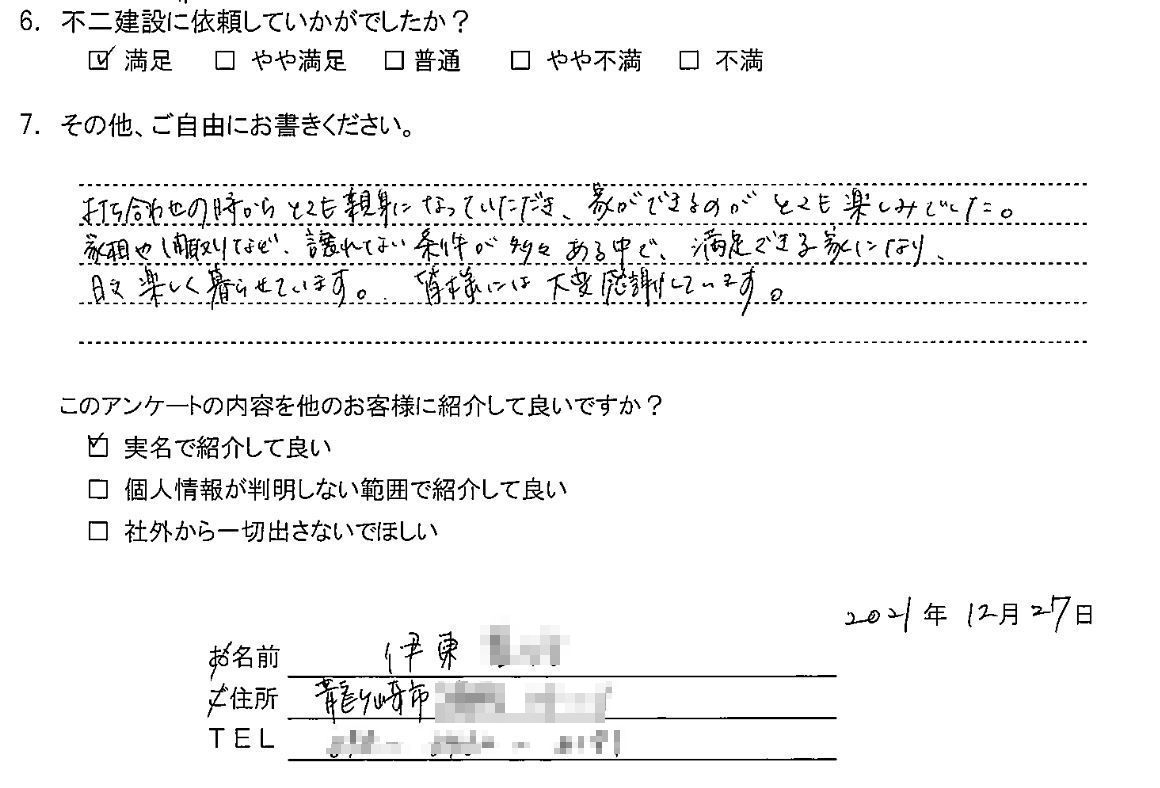 6. 不二建設に依頼していかがでしたか？
☑ 満足 □ やや満足 □ 普通 □ やや不満 □ 不満
7. その他、ご自由にお書きください。
打ち合わせの時からとても親身になっていただき、家ができるのがとても楽しみでした。
家相や間取りなど、譲れない条件が多々ある中で、満足できる家になり、
日々楽しく暮らせています。皆様には大変感謝しています。
このアンケートの内容を他のお客様に紹介して良いですか？
☑ 実名で紹介して良い
□ 個人情報が判明しない範囲で紹介して良い
□ 社外から一切出さないでほしい
2021年 12月27日
お名前 伊東
ご住所 龍ヶ崎市
TEL